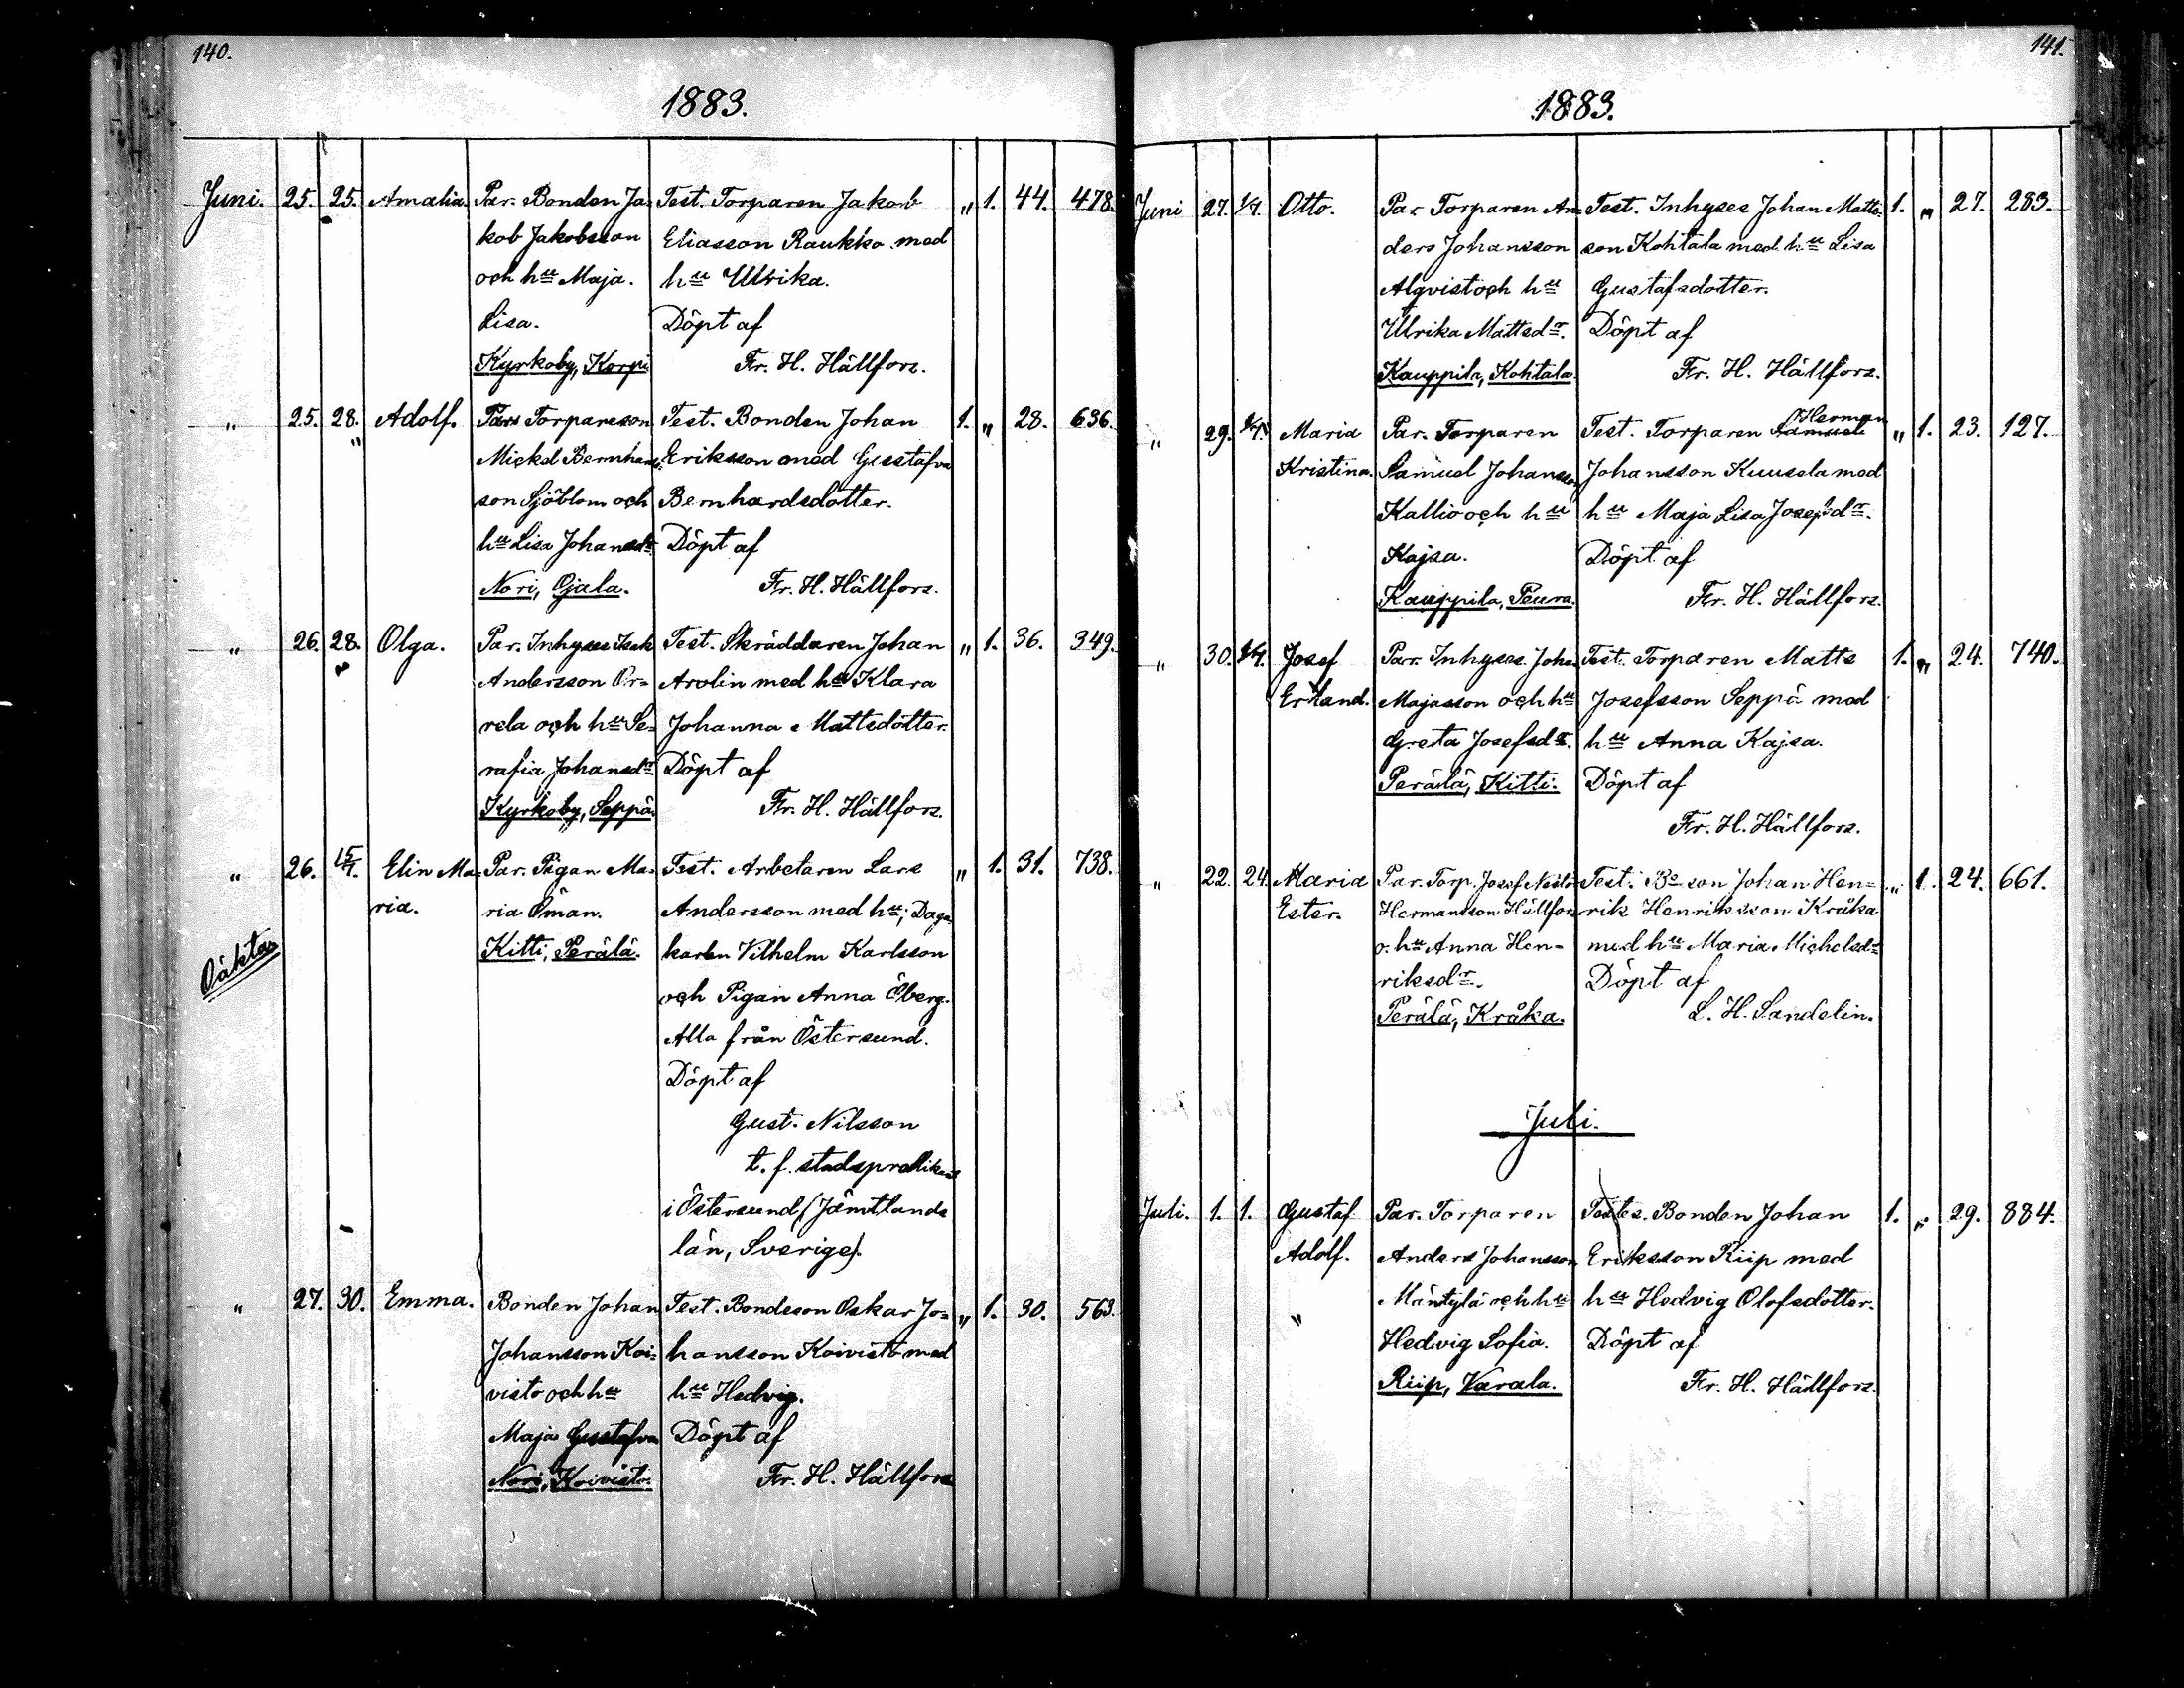 140.
1883.
Juni. 25. 25. Amalia. Par. Bonden Ja- Test. Torparen Jakob „ 1. 44. 478.
kob Jakobsson Eliasson Raukko med
och hu Maja. hu Ulrika.
Lisa. Döpt af
Kyrkoby, Korpi Fr. H. Hällfors.
„ 25. 28. Adolf. Par. Torpareson Test. Bonden Johan 1. „ 28. 636.
Mickel Bernhards- Eriksson med Gustafva
son Sjöblom och Bernhardsdotter.
hu Lisa Johansdr Döpt af
Nori, Ojala. Fr. H. Hällfors.
„ 26. 28. Olga. Par. Inhyses Isak Test. Skräddaren Johan „ 1. 36. 349.
Andersson Or- Arolin med hu Klara
rela och hu Se- Johanna Mattsdotter.
rafia Johansdr Döpt af
Kyrkoby, Seppä. Fr. H. Hällfors.
„ 26. 15/7. Elin Ma- Par. Pigan Ma- Test. Arbetaren Lars „ 1. 31. 738.
ria. ria Öman. Andersson med hu; Dags-
Oäkta Kitti, Perälä. karlen Vilhelm Karlsson
och Pigan Anna Öberg.
Alla från Östersund.
Döpt af
Gust. Nilsson
t. f. stadspredikant
i Östersund, (Jämtlands
län, Sverige).
„ 27. 30. Emma. Bonden Johan Test. Bondeson Oskar Jo- „ 1. 30. 563.
Johansson Koi- hansson Koivisto med
visto och hu hu Hedvig.
Maja Gustafva Döpt af
Nori, Koivisto. Fr. H. Hällfors
141.
1883.
Juni 27. 1/7. Otto. Par. Torparen An- Test. Inhyses Johan Matts- 1. „ 27. 283.
ders Johansson son Kohtala med hu Lisa
Alqvist och hu Gustafsdotter.
Ulrika Mattsdr. Döpt af
Kauppila, Kohtala. Fr. H. Hällfors.
Herman
„ 29. 1/7. Maria Par. Torparen Test. Torparen Samuel „ 1. 23. 127.
Kristina. Samuel Johansson Johansson Kuusela med
Kallio och hu hu Maja Lisa Josefsdr.
Kajsa. Döpt af
Kauppila, Peura. Fr. H. Hällfors.
„ 30. 1/7. Josef Par. Inhyses Johan Test. Torparen Matts 1. „ 24. 740.
Erland. Majasson och hu Josefsson Seppä med
Greta Josefsdr. hu Anna Kajsa.
Perälä, Kitti. Döpt af
Fr. H. Hällfors.
„ 22. 24. Maria Par. Torp. Josef Nestor Test. Boson Johan Hen- „ 1. 24. 661.
Ester. Hermansson Hällfors rik Henriksson Kråka
o. hu Anna Hen- med hu Maria Michelsdr
riksdr. Döpt af
Perälä, Kråka. L. H. Sandelin.
Juli.
Juli. 1. 1. Gustaf Par. Torparen Testes. Bonden Johan 1. „ 29. 884.
Adolf. Anders Johansson Eriksson Riip med
Mäntylä och hu hu Hedvig Olofsdotter.
„ Hedvig Sofia. Döpt af
Riip, Varala. Fr. H. Hällfors.